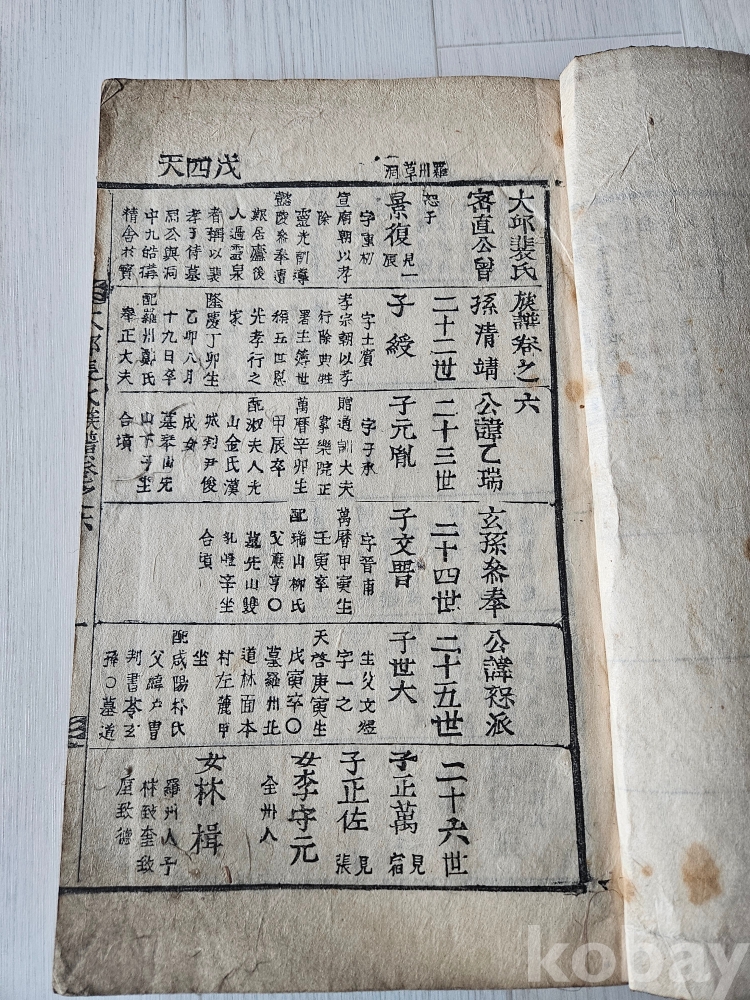 戊四天
羅州草洞
大邱裴氏族譜卷之六
密直公曾孫清靖公諱乙瑞玄孫叅奉公諱派
二十二世
二十三世
二十四世
二十五世
二十六世
景復 見一辰
字重初
宣廟朝以孝
除
靈光訓導
懿陵叅奉遭
艱居廬後
人過靈泉
者稱以裴
孝子侍墓
焉公與洞
中九皓講
精舍於寶
子綬
字士賓
孝宗朝以孝
行除典牲
署主簿世
稱五世忠
光孝行之
家
隆慶丁卯生
乙卯八月
十九日卒
配羅州鄭氏
奉正大夫
子元胤
字子承
贈通訓大夫
掌樂院正
萬曆辛卯生
甲辰卒
配淑夫人光
山金氏漢
城判尹俊
成女
墓翠山先
山下子坐
合墳
子文晋
字晉甫
萬曆甲寅生
壬寅卒
配瑞山柳氏
父應亨〇
墓先山雙
乳峴辛坐
合墳
子世大
生父文煜
字一之
天啓庚寅生
戊寅卒〇
墓羅州北
道林面本
村左麓甲
坐
配咸陽朴氏
父暐戶曹
判書苓玄
孫〇墓道
子正萬 見宿
子正佐 見張
女李守元
全州人
女林楫
羅州人子
致奎致
厚致德
大邱裴氏族譜卷之六
kobay